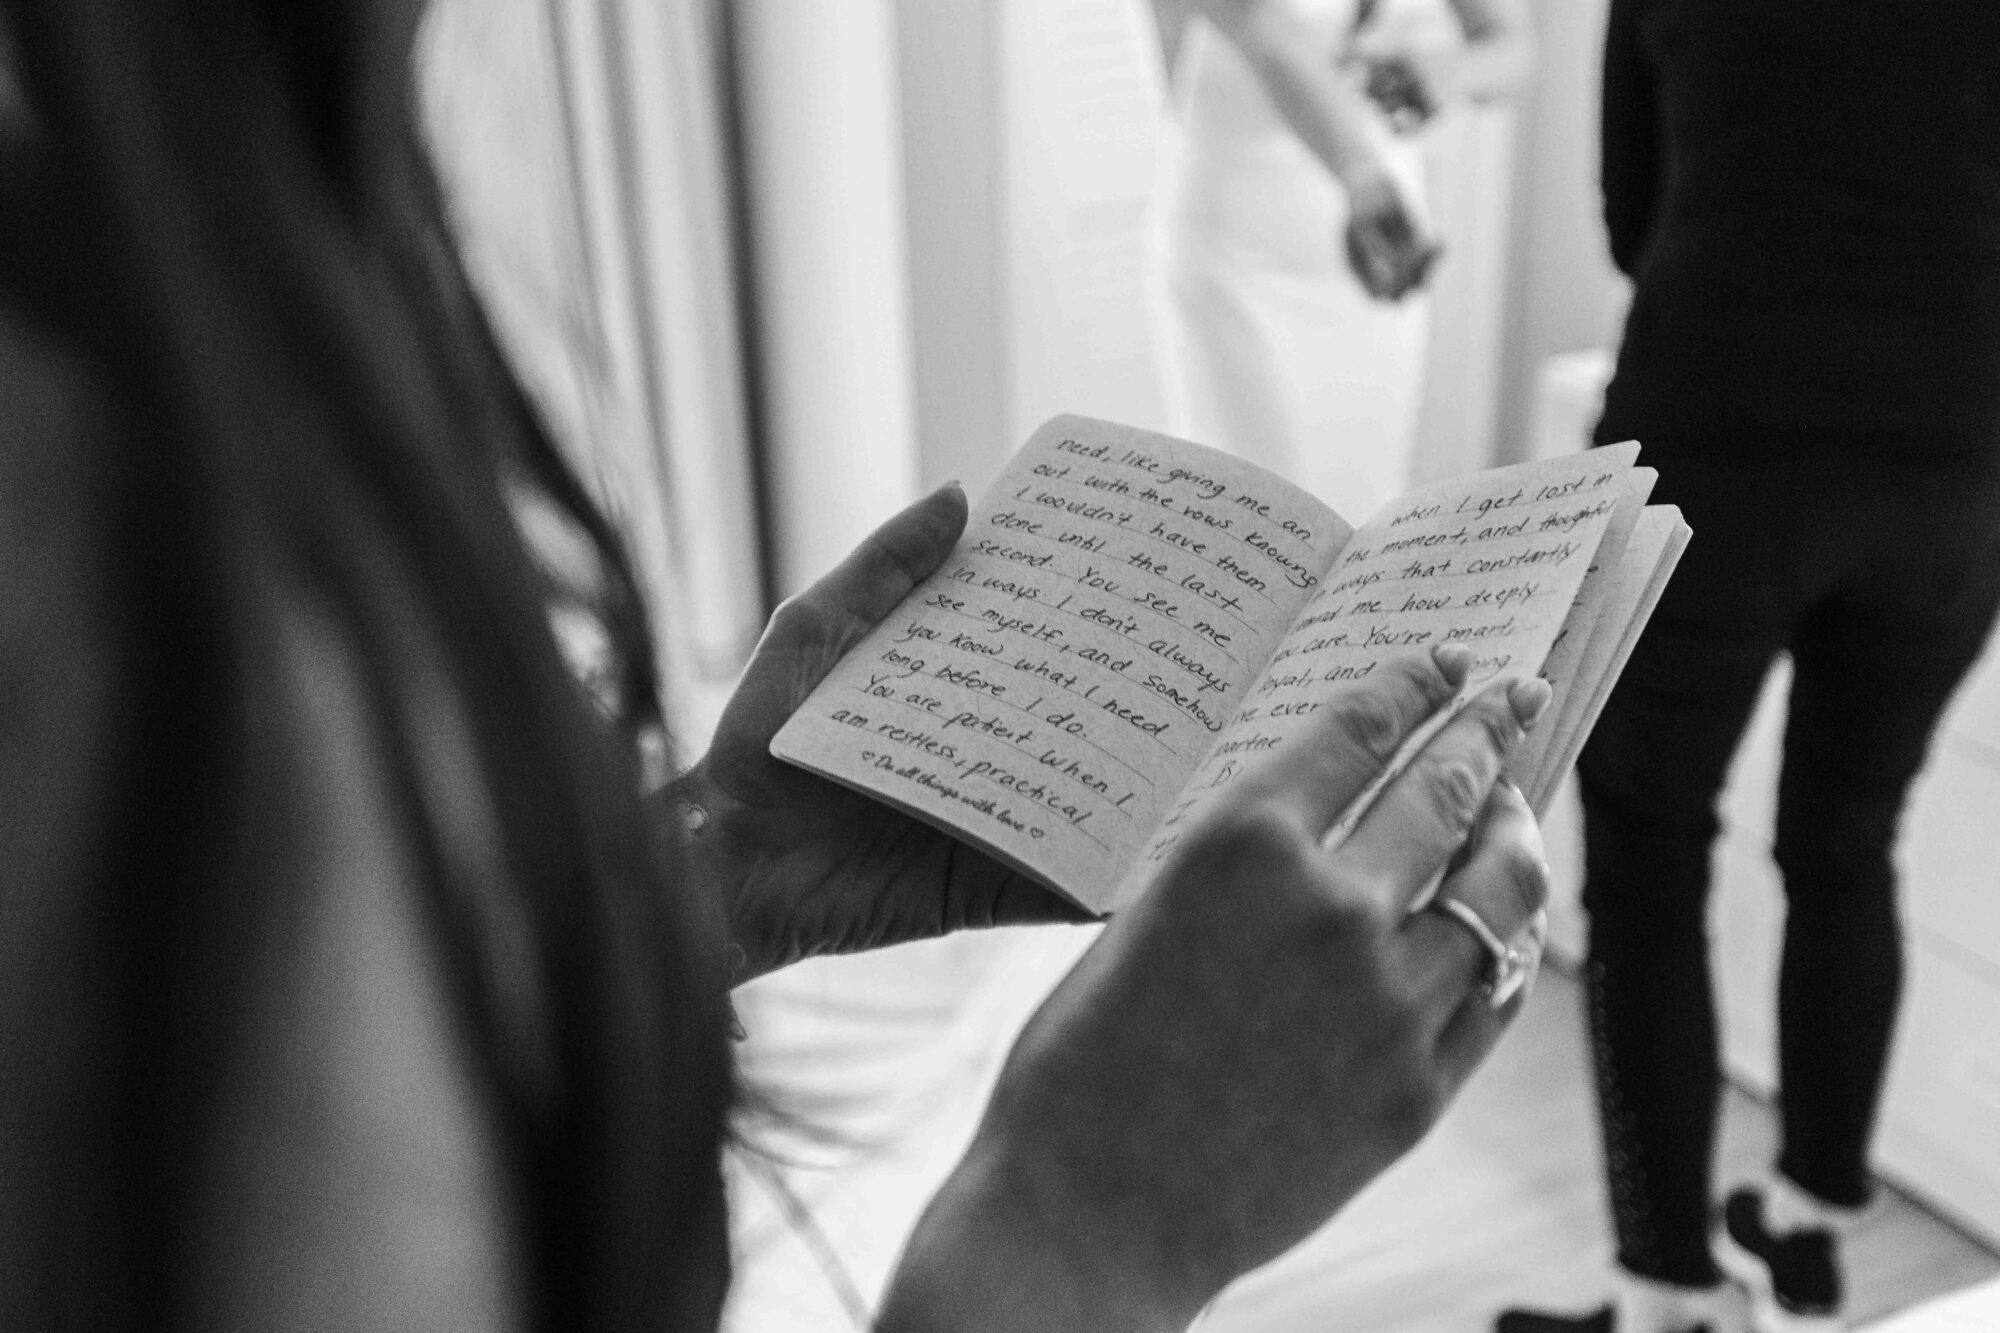 need, like giving me an
out with the vows knowing
I wouldn't have them
done until the last
second. You see me
in ways I don't always
see myself, and somehow
you know what I need
long before I do.
You are patient when I
am restless, practical
♡ Do all things with love ♡
when I get lost in
the moment, and thoughtful
ways that constantly
me how deeply
you care. You're smart,
loyal, and
ever